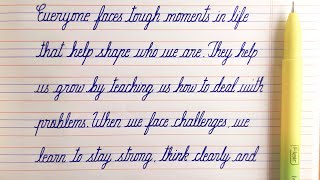 Everyone faces tough moments in life
that help shape who we are. They help
us grow by teaching us how to deal with
problems. When we face challenges, we
learn to stay strong, think clearly, and